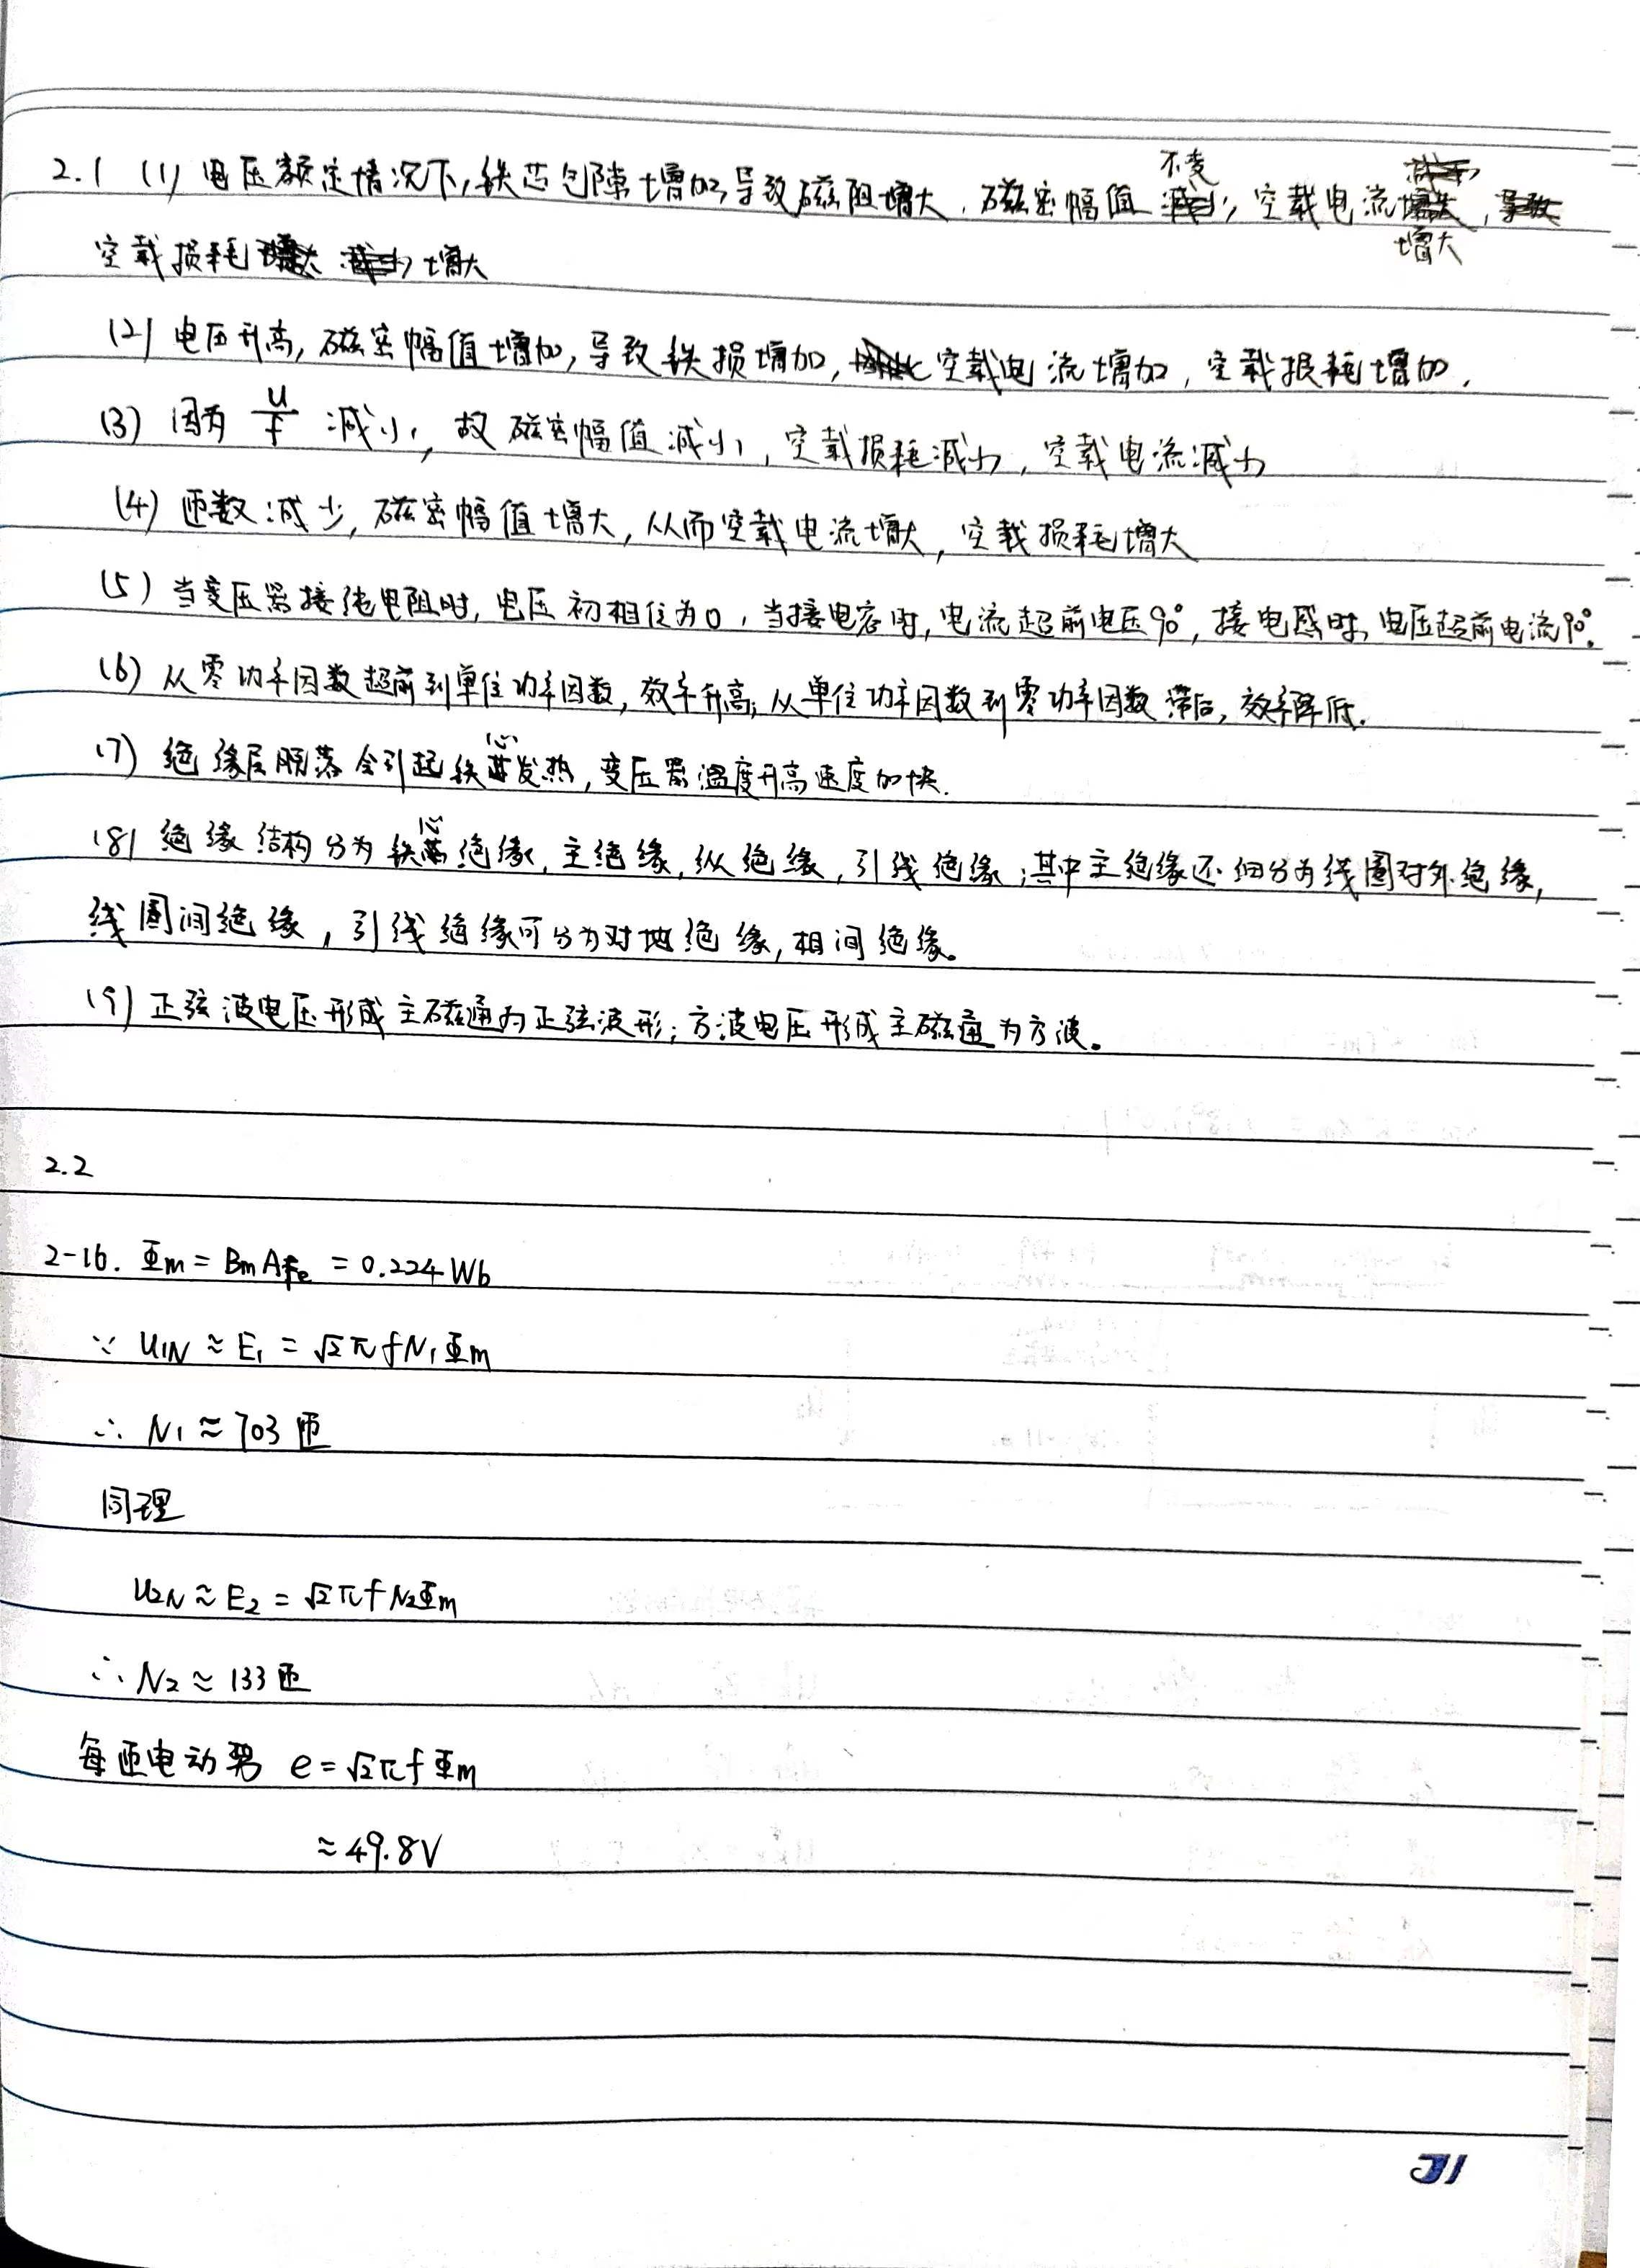 2.1 (1) 电压额定情况下,铁芯气隙增加,导致磁阻增大,磁密幅值不变,空载电流增大,
空载损耗增大
(2) 电压升高,磁密幅值增加,导致铁损增加,空载电流增加,空载损耗增加.
(3) 因为 U/f 减小,故磁密幅值减小,空载损耗减小,空载电流减小
(4) 匝数减少,磁密幅值增大,从而空载电流增大,空载损耗增大
(5) 当变压器接纯电阻时,电压初相位为0,当接电容时,电流超前电压90°,接电感时,电压超前电流90°.
(6) 从零功率因数超前到单位功率因数,效率升高;从单位功率因数到零功率因数滞后,效率降低.
(7) 绝缘层脱落会引起铁心发热,变压器温度升高速度加快.
(8) 绝缘结构分为铁心绝缘,主绝缘,纵绝缘,引线绝缘;其中主绝缘还细分为线圈对外绝缘,
线圈间绝缘,引线绝缘可分为对地绝缘,相间绝缘。
(9) 正弦波电压形成主磁通为正弦波形;方波电压形成主磁通为方波。
2.2
2-16. Φm = Bm AFe = 0.224 Wb
∵ U1N ≈ E1 = √2πfN1Φm
∴ N1 ≈ 703 匝
同理
U2N ≈ E2 = √2πfN2Φm
∴ N2 ≈ 133匝
每匝电动势 e = √2πfΦm
≈ 49.8V